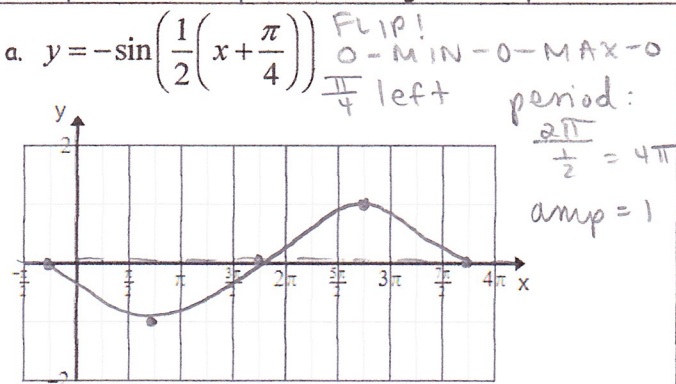 a. y = −sin(1/2(x + π/4))
FLIP!
0 - MIN - 0 - MAX - 0
π/4 left
period:
2π / 1/2 = 4π
amp = 1
y
2
-π/2 π/2 π 3π/2 2π 5π/2 3π 7π/2 4π x
-2